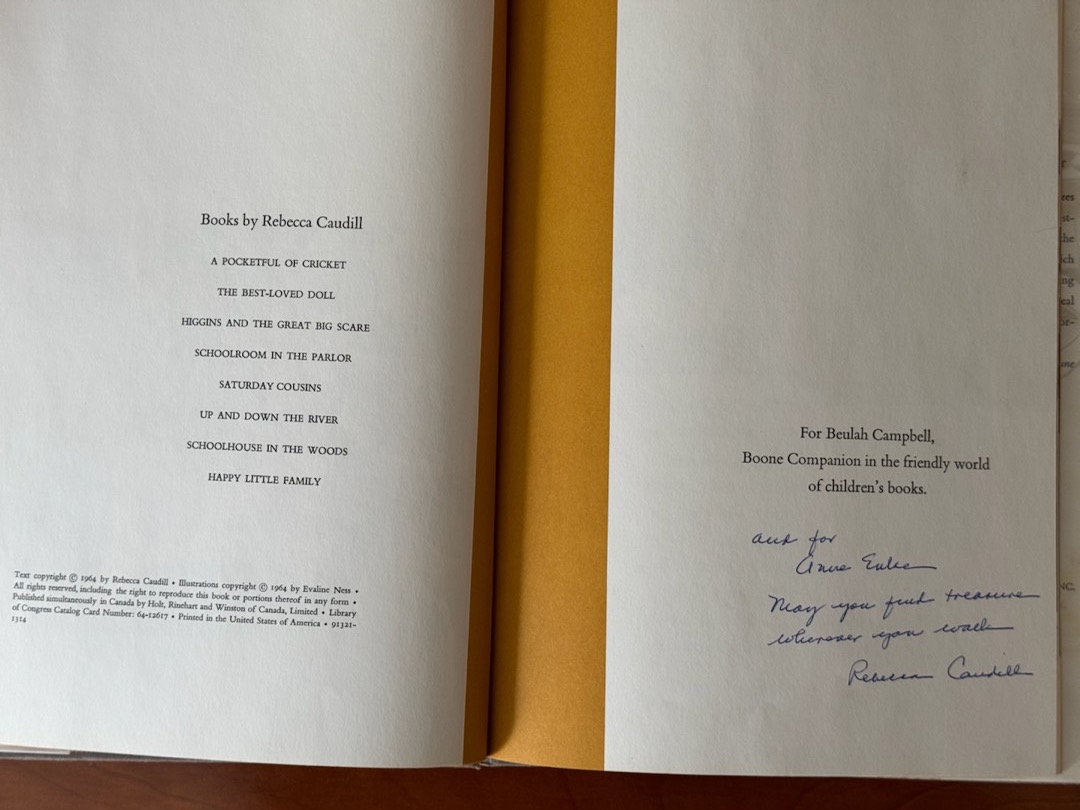 Books by Rebecca Caudill
A POCKETFUL OF CRICKET
THE BEST-LOVED DOLL
HIGGINS AND THE GREAT BIG SCARE
SCHOOLROOM IN THE PARLOR
SATURDAY COUSINS
UP AND DOWN THE RIVER
SCHOOLHOUSE IN THE WOODS
HAPPY LITTLE FAMILY
Text copyright © 1964 by Rebecca Caudill • Illustrations copyright © 1964 by Evaline Ness •
All rights reserved, including the right to reproduce this book or portions thereof in any form •
Published simultaneously in Canada by Holt, Rinehart and Winston of Canada, Limited • Library
of Congress Catalog Card Number: 64-12617 • Printed in the United States of America • 91321-
1314
For Beulah Campbell,
Boone Companion in the friendly world
of children's books.
and for
May you find treasure
wherever you walk
Rebecca Caudill